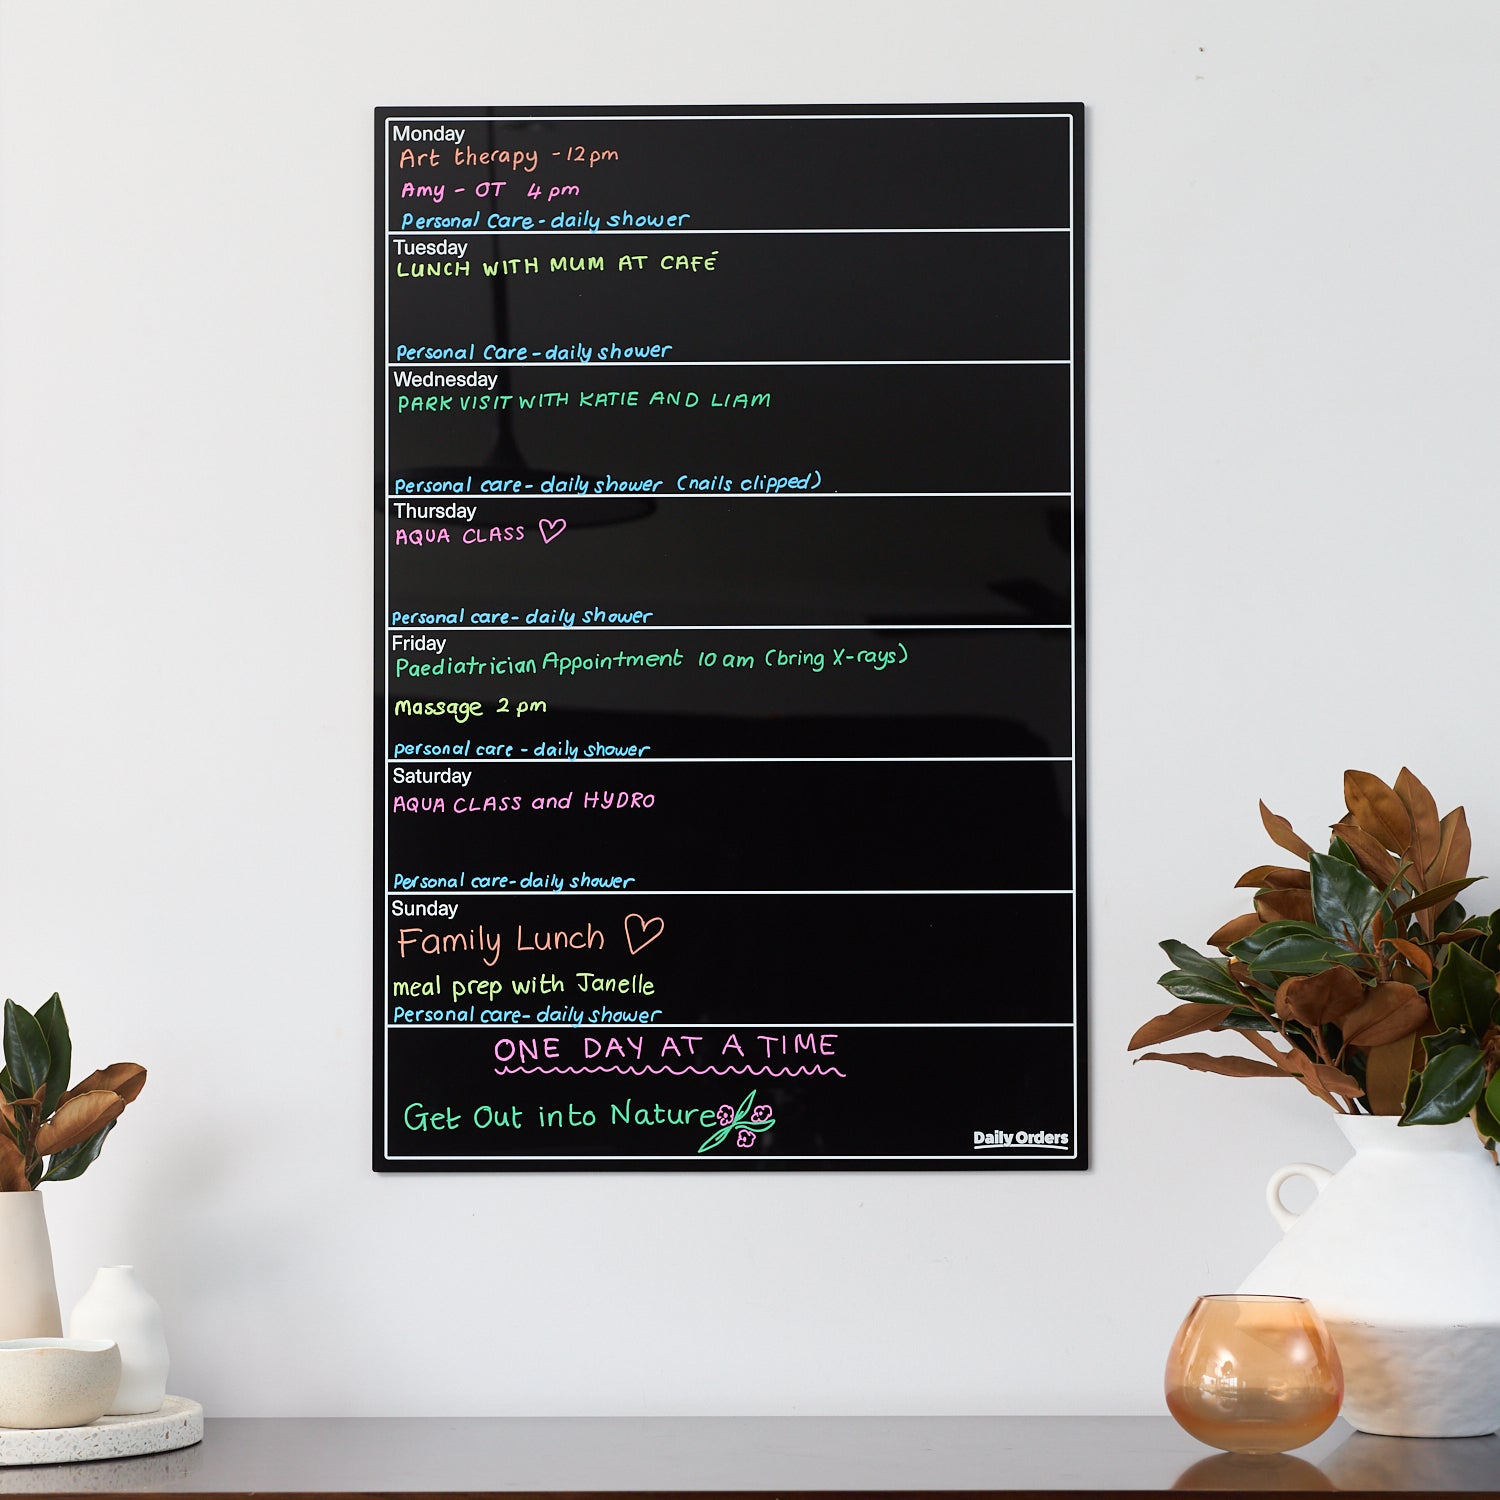 Monday
Art therapy - 12pm
Amy - OT 4pm
Personal Care - daily shower
Tuesday
LUNCH WITH MUM AT CAFÉ
Personal Care - daily shower
Wednesday
PARK VISIT WITH KATIE AND LIAM
Personal care - daily shower (nails clipped)
Thursday
AQUA CLASS ♡
Personal care - daily shower
Friday
Paediatrician Appointment 10am (bring X-rays)
Massage 2pm
personal care - daily shower
Saturday
AQUA CLASS and HYDRO
Personal care - daily shower
Sunday
Family Lunch ♡
meal prep with Janelle
Personal care - daily shower
ONE DAY AT A TIME
Get Out into Nature
Daily Orders